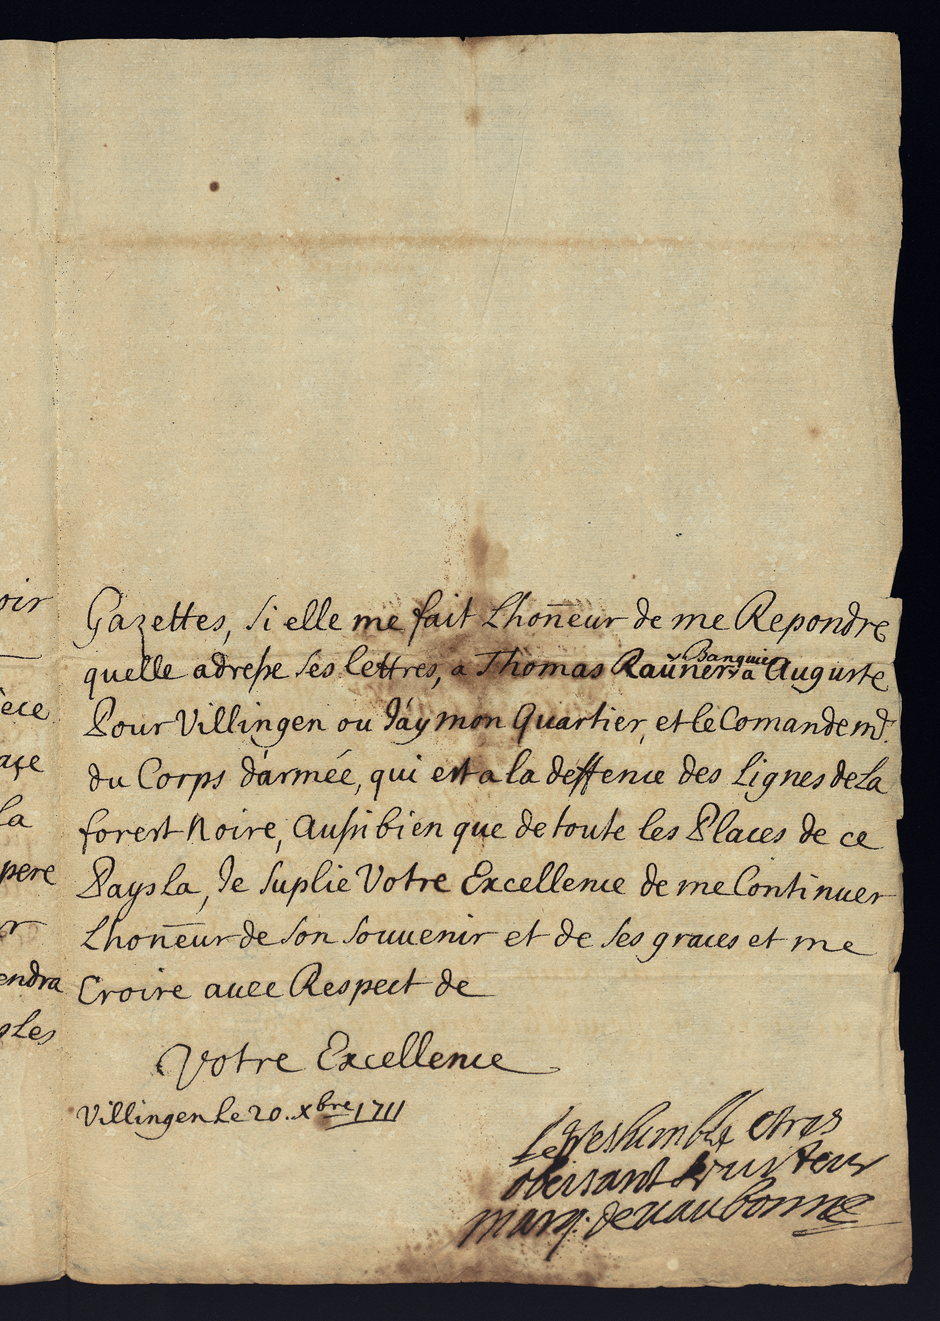 oir
Gazettes, si elle me fait Lhoneur de me Repondre
quelle adresse ses lettres, a Thomas Raüner Banquier a Auguste
ece
Pour Villingen ou J'ay mon Quartier, et le Comandemt.
du Corps d'armée, qui est a la deffence des Lignes de La
la
forest Noire, aussi bien que de toute les Places de ce
pere
Pays la, Je suplie Votre Excellence de me Continuer
r
Lhoneur de son souvenir et de ses graces et me
endra
Croire avec Respect de
les
Votre Excellence
Villingen Le 20. Xbre 1711
Le tres humble et tres
obeissant serviteur
Marq. de vaubonne